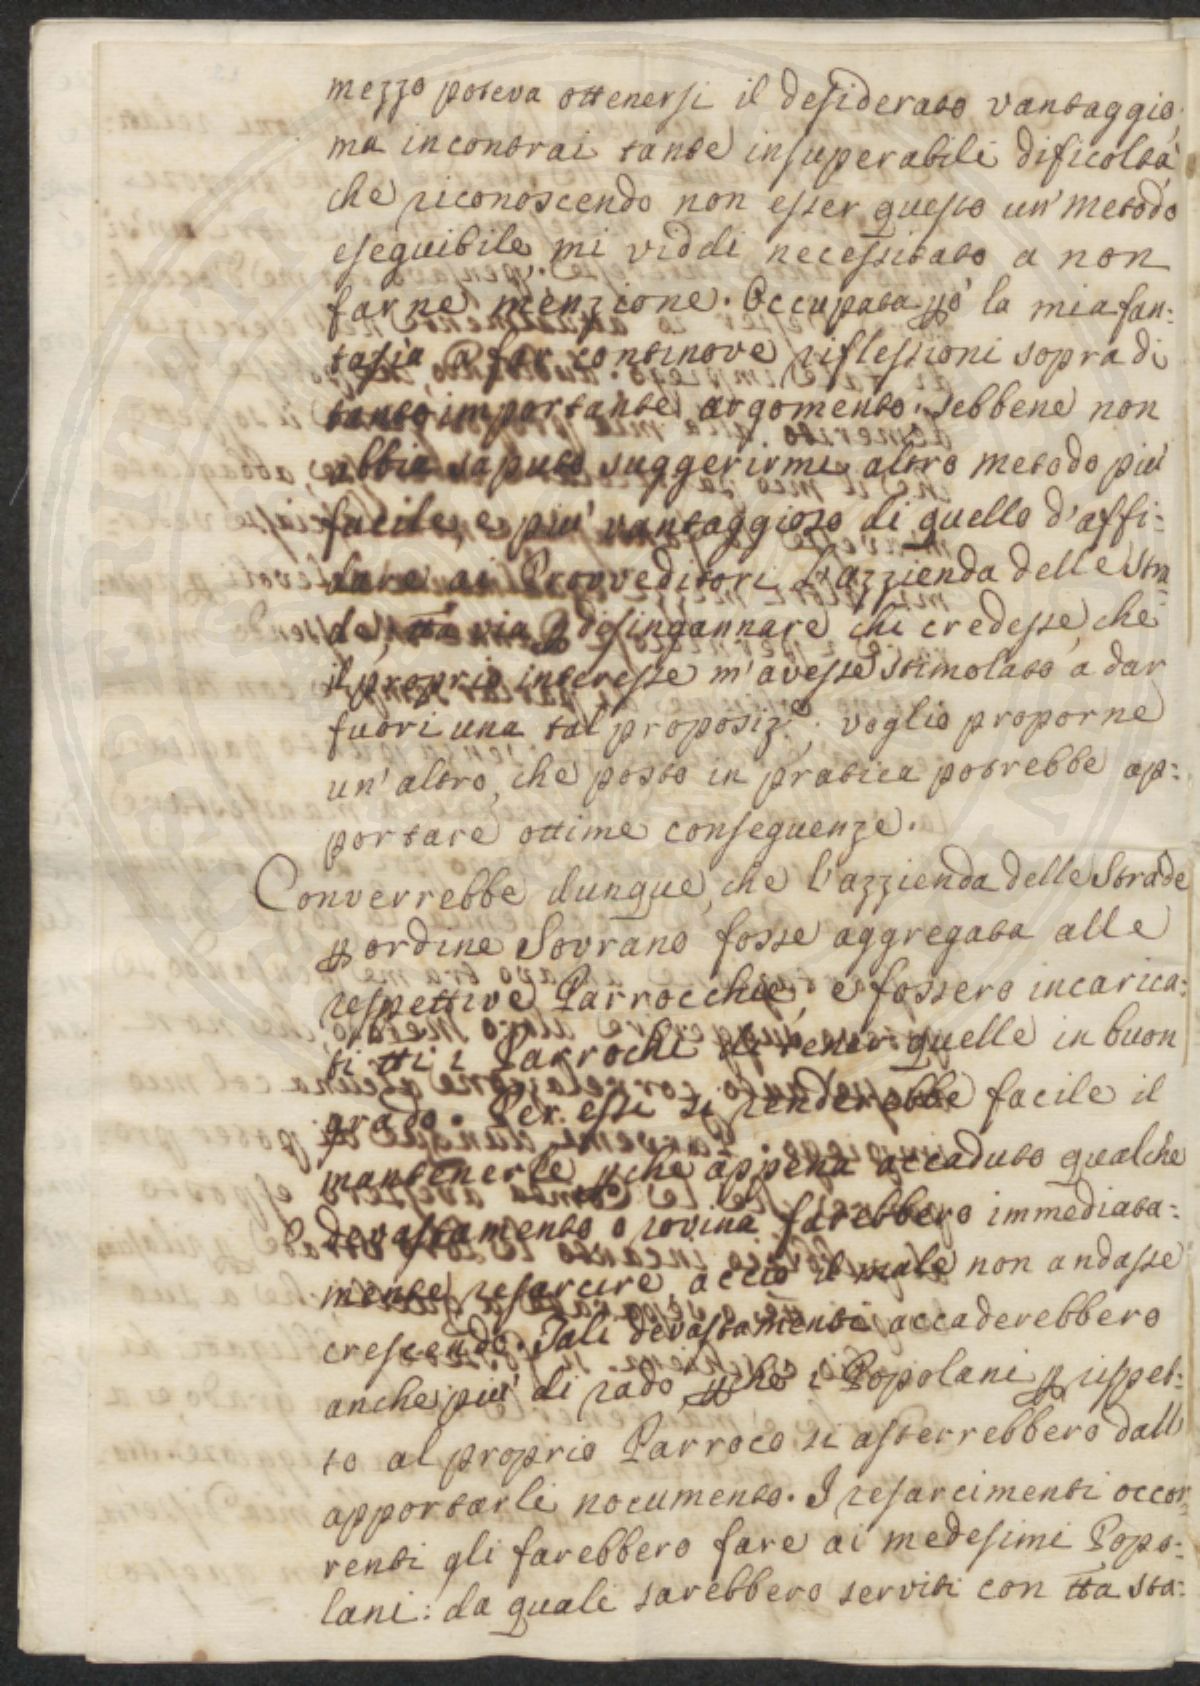 mezzo poteva ottenersi il desiderato vantaggio,
ma incontrai tante insuperabili dificoltà,
che riconoscendo non esser questo un' metodo
eseguibile mi viddi necessitato a non
farne menzione. Occupata però la mia fan:
tasia a far continove riflessioni sopra di
tanto importante argomento. sebbene non
abbia saputo suggerirmi altro metodo piu'
facile, e piu' vantaggioso di quello d'affi:
dare ai Provveditori l'azzienda delle Stra:
de, tta via p disingannare chi credesse, che
il proprio interesse m'avesse stimolato a dar
fuori una tal proposize. voglio proporne
un'altro, che posto in pratica potrebbe ap:
portare ottime conseguenze.
Converrebbe dunque, che l'azzienda delle Strade
p ordine Sovrano fosse aggregata alle
respettive Parrocchie, e fossero incarica:
ti tti i Parrochi di tener quelle in buon
grado. Per essi si renderebbe facile il
mantenerle pche appena accaduto qualche
devastamento o rovina farebbero immediata:
mente resarcire acciò il male non andasse
crescendo. Tali devastamenti accaderebbero
anche piu' di rado pche i Popolani p rispet:
to al proprio Parroco si asterrebbero dall'
apportarli nocumento. I resarcimenti occor:
renti gli farebbero fare ai medesimi Popo:
lani: da quali sarebbero serviti con tta sta: